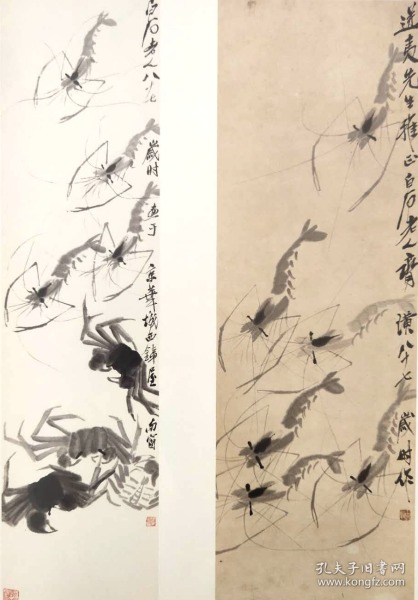 白石老人八十七歲時画于京華城西鐵屋南窗
先生雅正白石老人齊璜八十七歲時作
孔夫子旧书网
www.kongfz.com